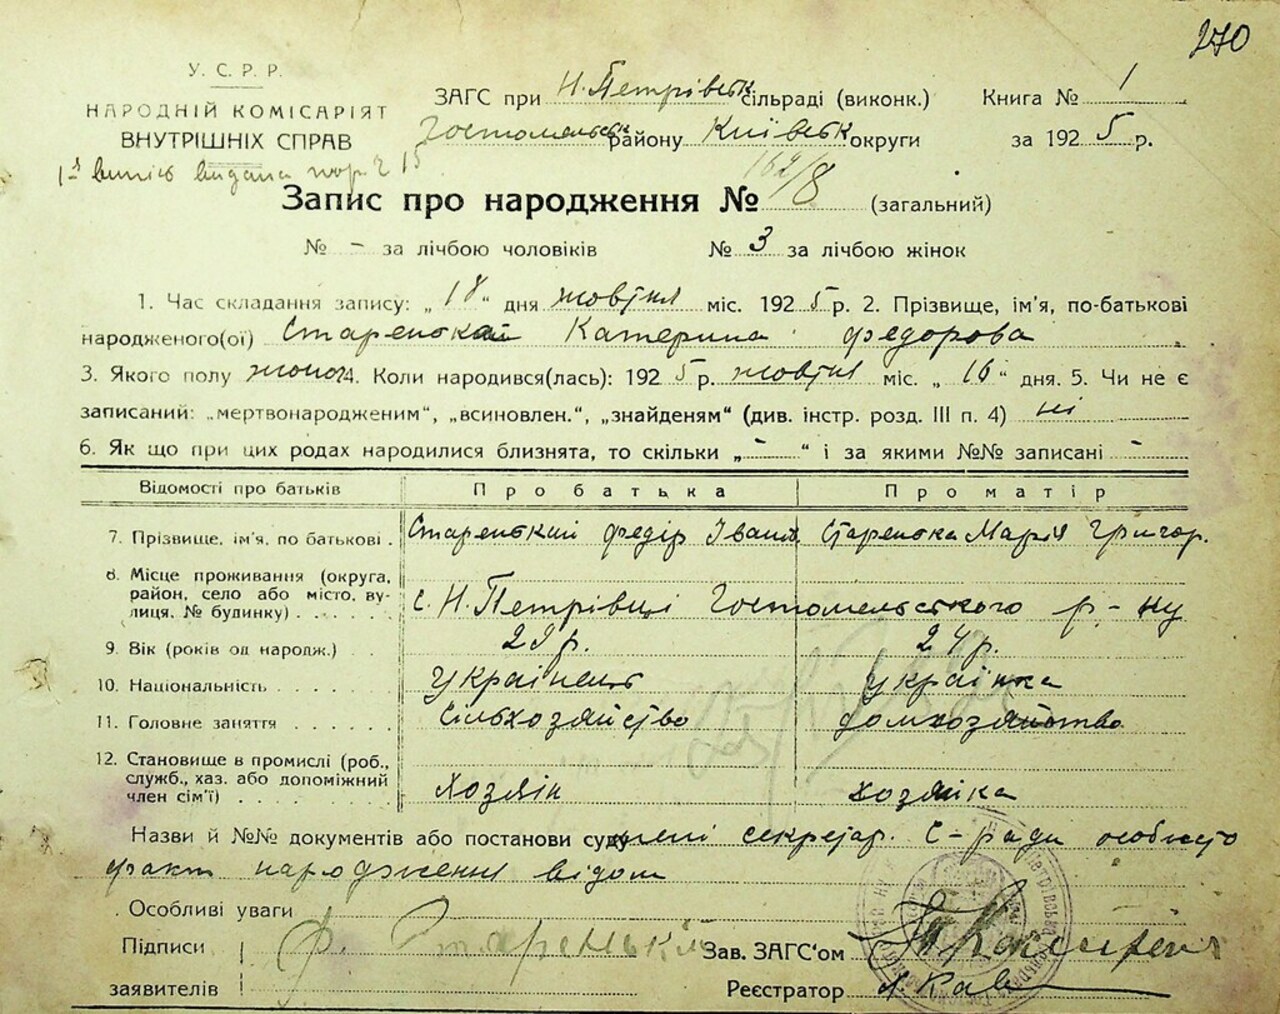 270
У. С. Р. Р.
НАРОДНІЙ КОМІСАРІЯТ
ВНУТРІШНІХ СПРАВ
ЗАГС при Н. Петрівськ. сільраді (виконк.) Книга № 1
Гостомельськ району Київськ округи за 1925 р.
1й випис видана 15
Запис про народження № 162/8 (загальний)
№ – за лічбою чоловіків № 3 за лічбою жінок
1. Час складання запису: „18“ дня жовтня міс. 1925 р. 2. Прізвище, ім'я, по-батькові
народженого(ої) Старенокая Катерина Федорова
3. Якого полу жіноч 4. Коли народився(лась): 1925 р. жовтня міс. „16“ дня. 5. Чи не є
записаний: „мертвонародженим“, „всиновлен.“, „знайденям“ (див. інстр. розд. III п. 4) ні
6. Як що при цих родах народилися близнята, то скільки „–“ і за якими №№ записані –
Відомості про батьків Про батька Про матір
7. Прізвище, ім'я, по батькові . Старенький Федір Іванов. Старенька Марія Григор.
8. Місце проживання (округа,
район, село або місто, ву-
лиця, № будинку) . . . . . с. Н. Петрівці Гостомельського р-ну
9. Вік (років од народж.) . . 29 р. 24 р.
10. Національність . . . . . . українець українка
11. Головне заняття . . . . . сільхозяйство домхозяйство
12. Становище в промислі (роб.,
служб., хаз. або допоміжний
член сім'ї) . . . . . . . . Хозяїн хозяйка
Назви й №№ документів або постанови суду мені секретар. С-ради особисто
факт народження відом
. Особливі уваги
Підписи ф. Старенький Зав. ЗАГС'ом
заявителів Реєстратор